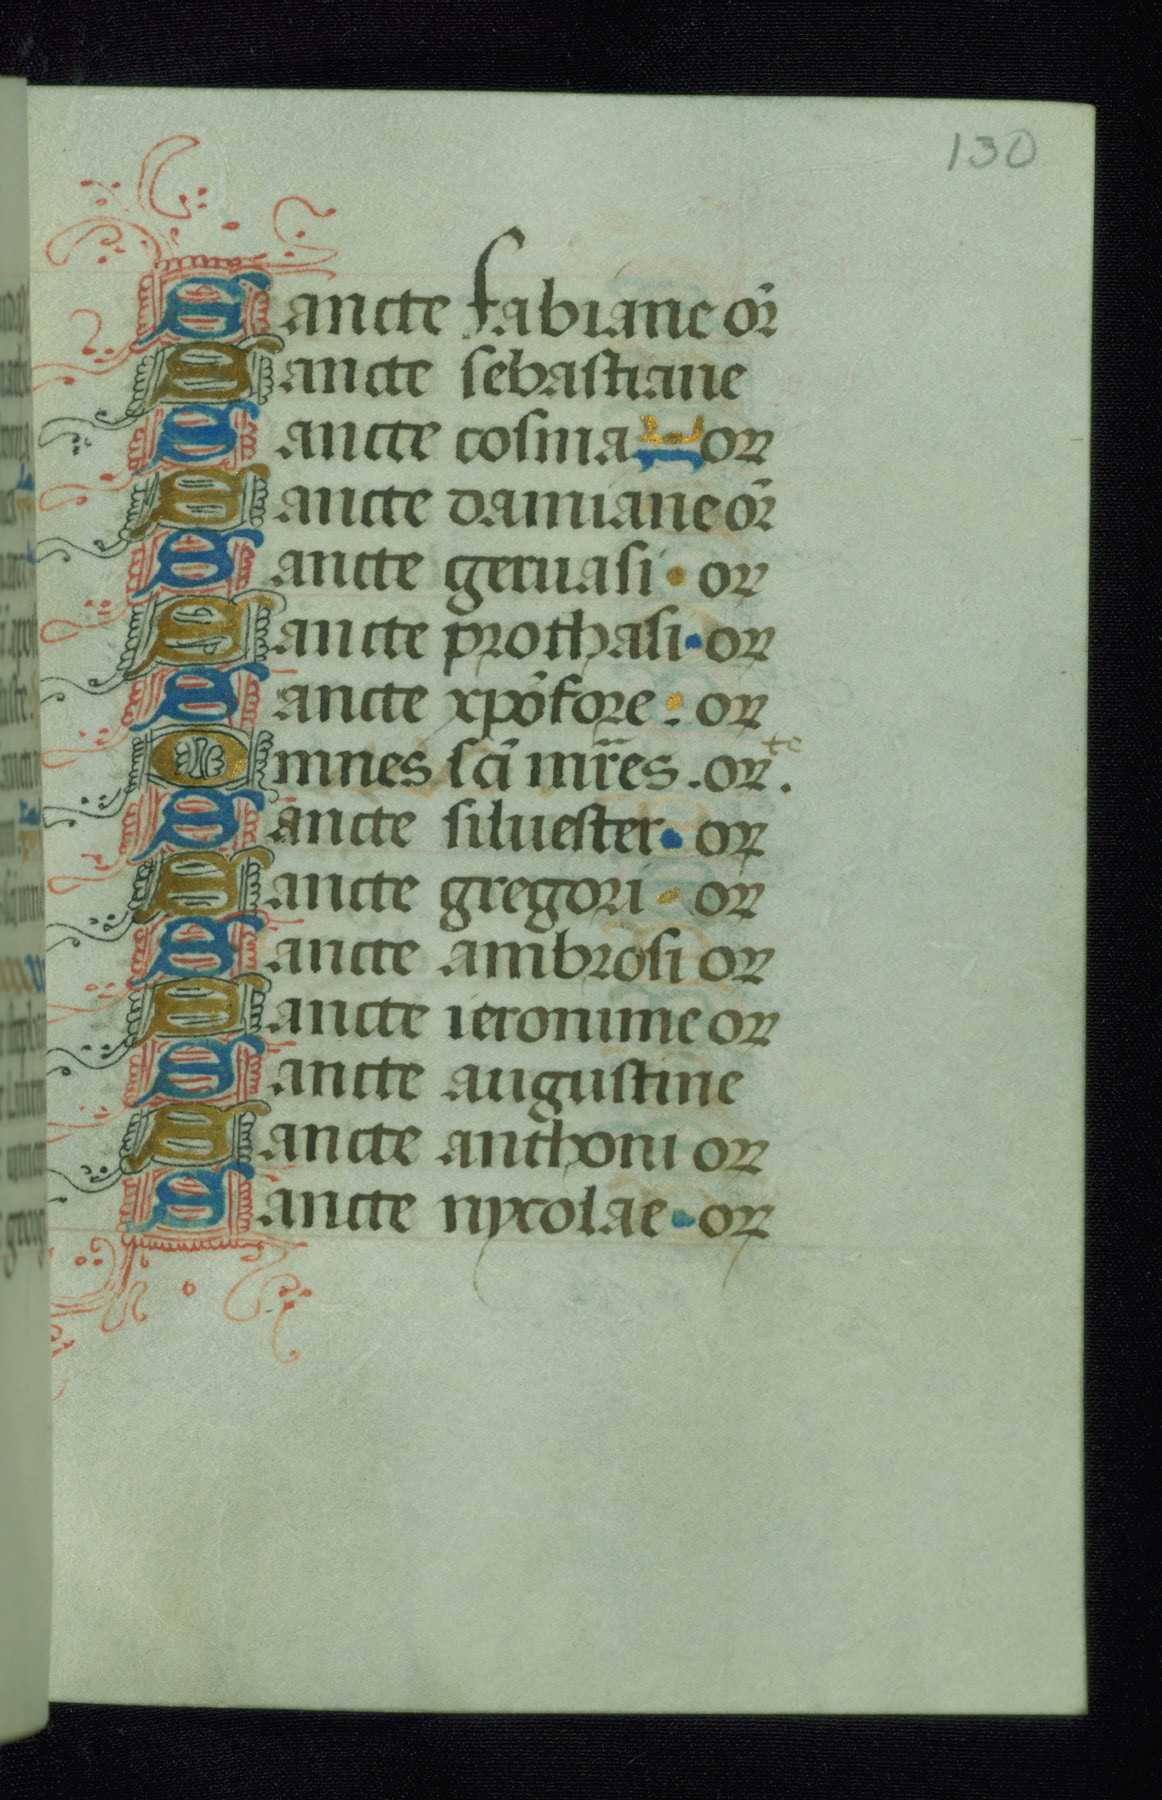 130
Sancte fabiane or̃
Sancte sebastiane
Sancte cosma or
Sancte damiane or̃
Sancte geruasi · or
Sancte prothasi · or
Sancte xp̃ofore . or
Omnes sc̃i mr̃es . or te.
Sancte siluester · or
Sancte gregori · or
Sancte ambrosi or
Sancte ieronime or
Sancte augustine
Sancte anthoni or
Sancte nycolae · or